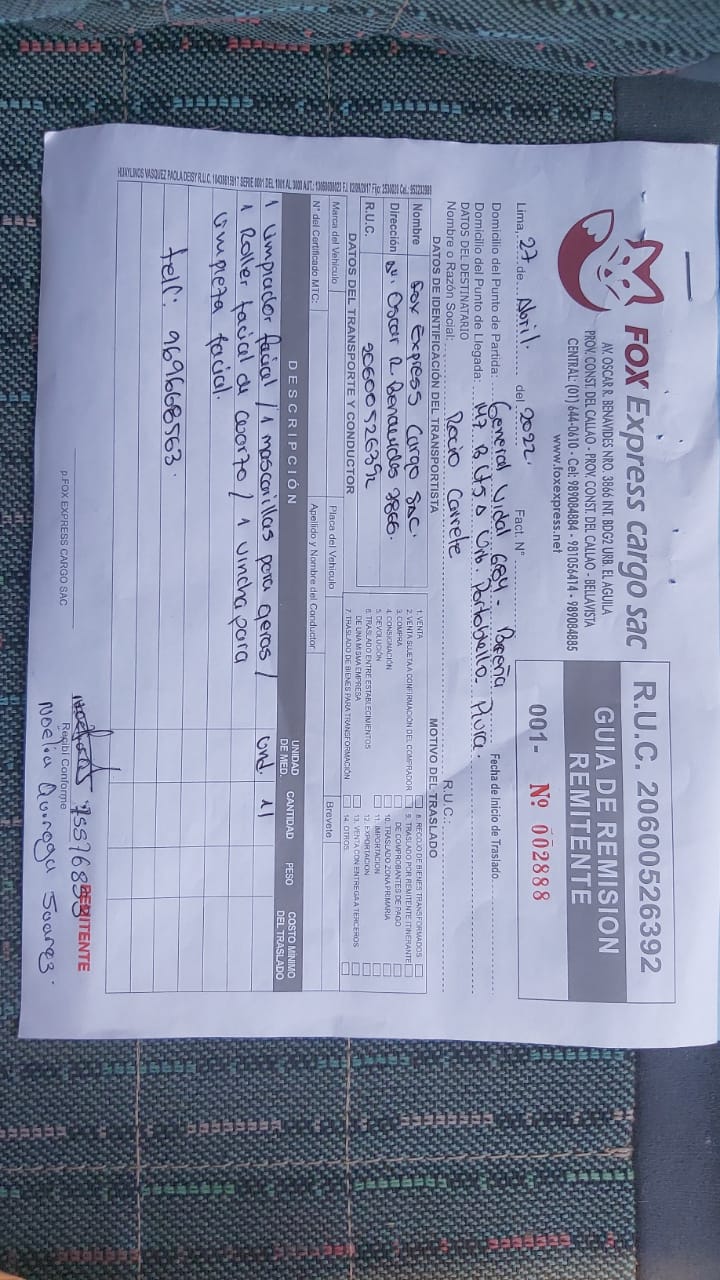 FOX Express cargo sac
AV. OSCAR R. BENAVIDES NRO. 3866 INT. BDG2 URB. EL AGUILA
PROV. CONST DEL CALLAO - PROV. CONST. DEL CALLAO - BELLAVISTA
CENTRAL: (01) 644-0610 - Cel: 989084884 - 981056414 - 989084885
www.foxexpress.net
R.U.C. 20600526392
GUIA DE REMISION
REMITENTE
001- Nº 002888
Lima, 27 de Abril. del 2022. Fact. N°
Domicilio del Punto de Partida: General Vidal 684 - Breña Fecha de Inicio de Traslado.
Domicilio del Punto de Llegada: Mz B Lt 5 Urb. Portobello. Piura.
DATOS DEL DESTINATARIO
Nombre o Razón Social: Rocio Carrete R.U.C.:
DATOS DE IDENTIFICACIÓN DEL TRANSPORTISTA
Nombre Fox Express Cargo Sac.
Dirección Av. Oscar R. Benavides 3866.
R.U.C. 20600526392
MOTIVO DEL TRASLADO
1. VENTA
2. VENTA SUJETA A CONFIRMACIÓN DEL COMPRADOR
3. COMPRA
4. CONSIGNACIÓN
5. DEVOLUCIÓN
6. TRASLADO ENTRE ESTABLECIMIENTOS
DE UNA MISMA EMPRESA
7. TRASLADO DE BIENES PARA TRANSFORMACIÓN
8. RECOJO DE BIENES TRANSFORMADOS
9. TRASLADO POR REMITENTE ITINERANTE
DE COMPROBANTES DE PAGO
10. TRASLADO ZONA PRIMARIA
11. IMPORTACION
12. EXPORTACION
13. VENTA CON ENTREGA A TERCEROS
14. OTROS
DATOS DEL TRANSPORTE Y CONDUCTOR
Marca del Vehículo Placa del Vehículo
N° del Certificado MTC: Apellido y Nombre del Conductor Brevete
DESCRIPCIÓN UNIDAD DE MED. CANTIDAD PESO COSTO MÍNIMO DEL TRASLADO
1 limpiador facial / 1 mascarillas para ojeras / Und. 11
1 Roller facial de cuarzo / 1 vincha para
limpieza facial.
telf: 969668563.
HUAYLINOS VASQUEZ PAOLA DEISY R.U.C.
p.FOX EXPRESS CARGO SAC
Recibí Conforme
REMITENTE
Noelia Quiroga Suarez.